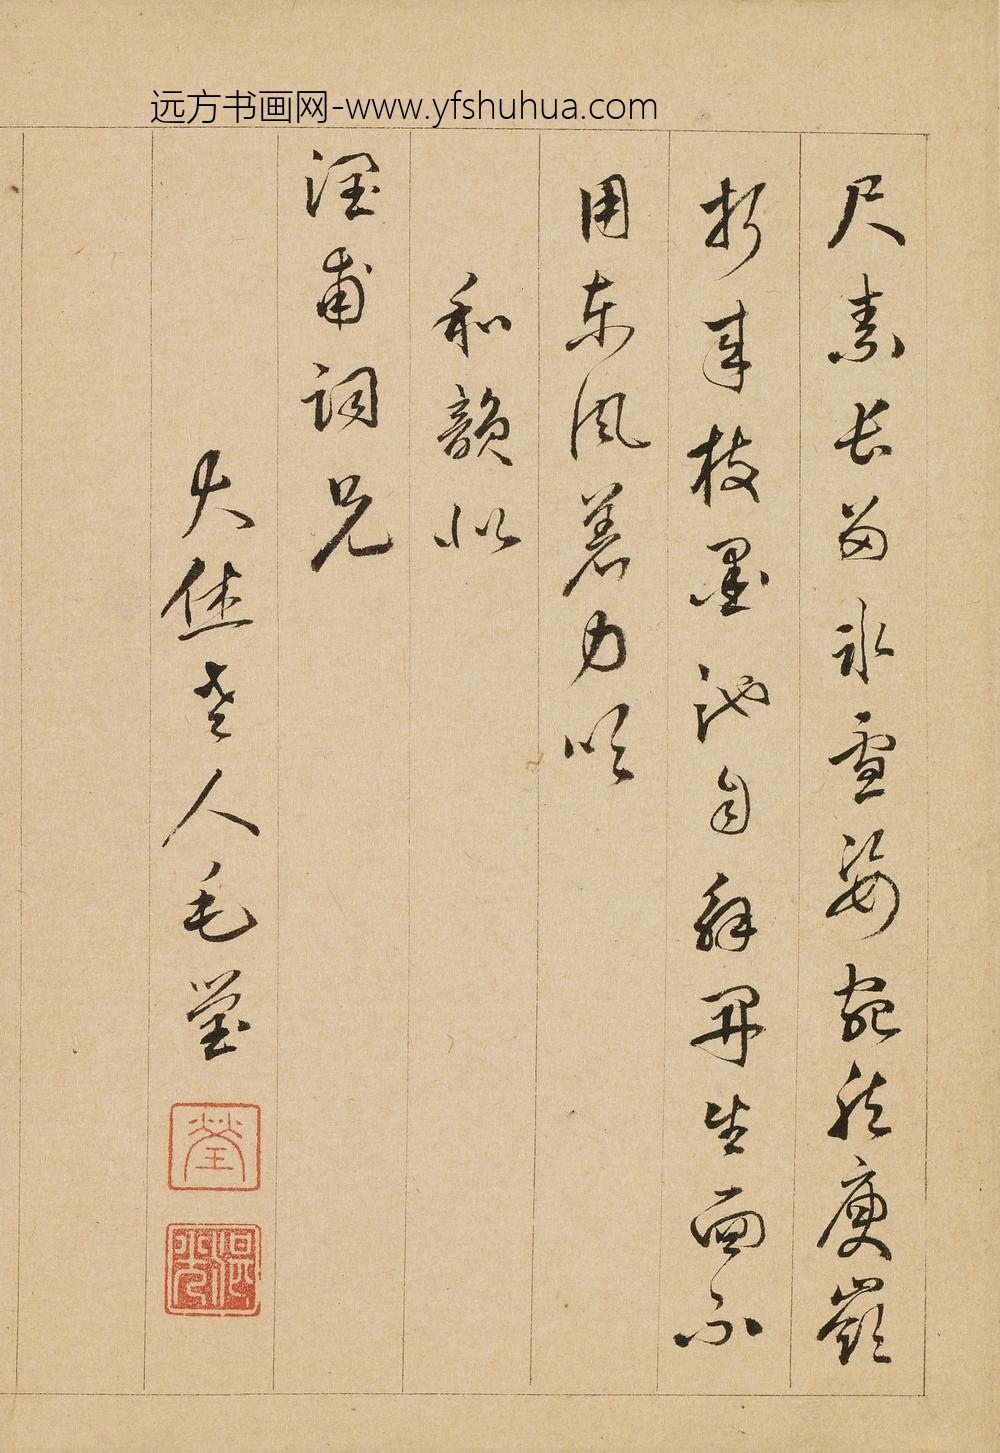 远方书画网-www.yfshuhua.com
尺素长留冰雪姿宛然庾岭
折来枝墨池自解开生面不
用东风着力吹
和韵似
润甫词兄
大休老人毛莹
瑩